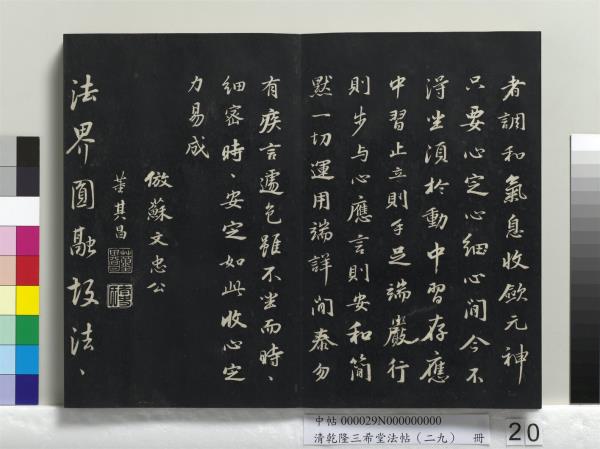 者調和氣息收斂元神
只要心定心細心閒今不
得坐須於動中習存應
中習止立則手足端嚴行
則步與心應言則安和簡
默一切運用端詳閒泰勿
有疾言遽色雖不坐而時、
細密時、安定如此收心定
力易成
倣蘇文忠公
董其昌
法界圓融故法、
中帖 000029N000000000
清乾隆三希堂法帖（二九） 冊
20